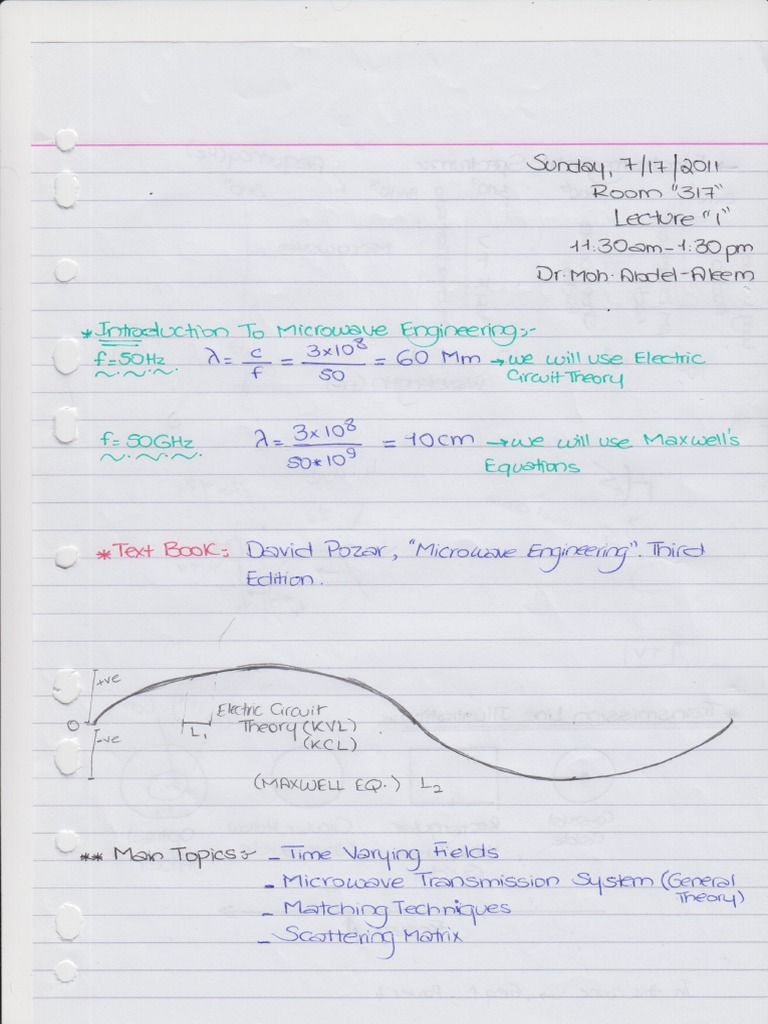 Sunday, 7/17/2011
Room "317"
Lecture "1"
11:30am-1:30pm
Dr. Moh. Abdel-Aleem
* Introduction To Microwave Engineering:-
f=50Hz λ = c/f = 3×10^8/50 = 60 Mm → we will use Electric
Circuit Theory
f= 50GHz λ = 3×10^8/50*10^9 = 10cm → we will use Maxwell's
Equations
* Text Book:- David Pozar, "Microwave Engineering". Third
Edition.
+ve
Electric Circuit
0 L1 Theory (KVL)
-ve (KCL)
(MAXWELL EQ.) L2
** Main Topics:- - Time Varying Fields
- Microwave Transmission System (General
Theory)
- Matching Techniques
- Scattering Matrix